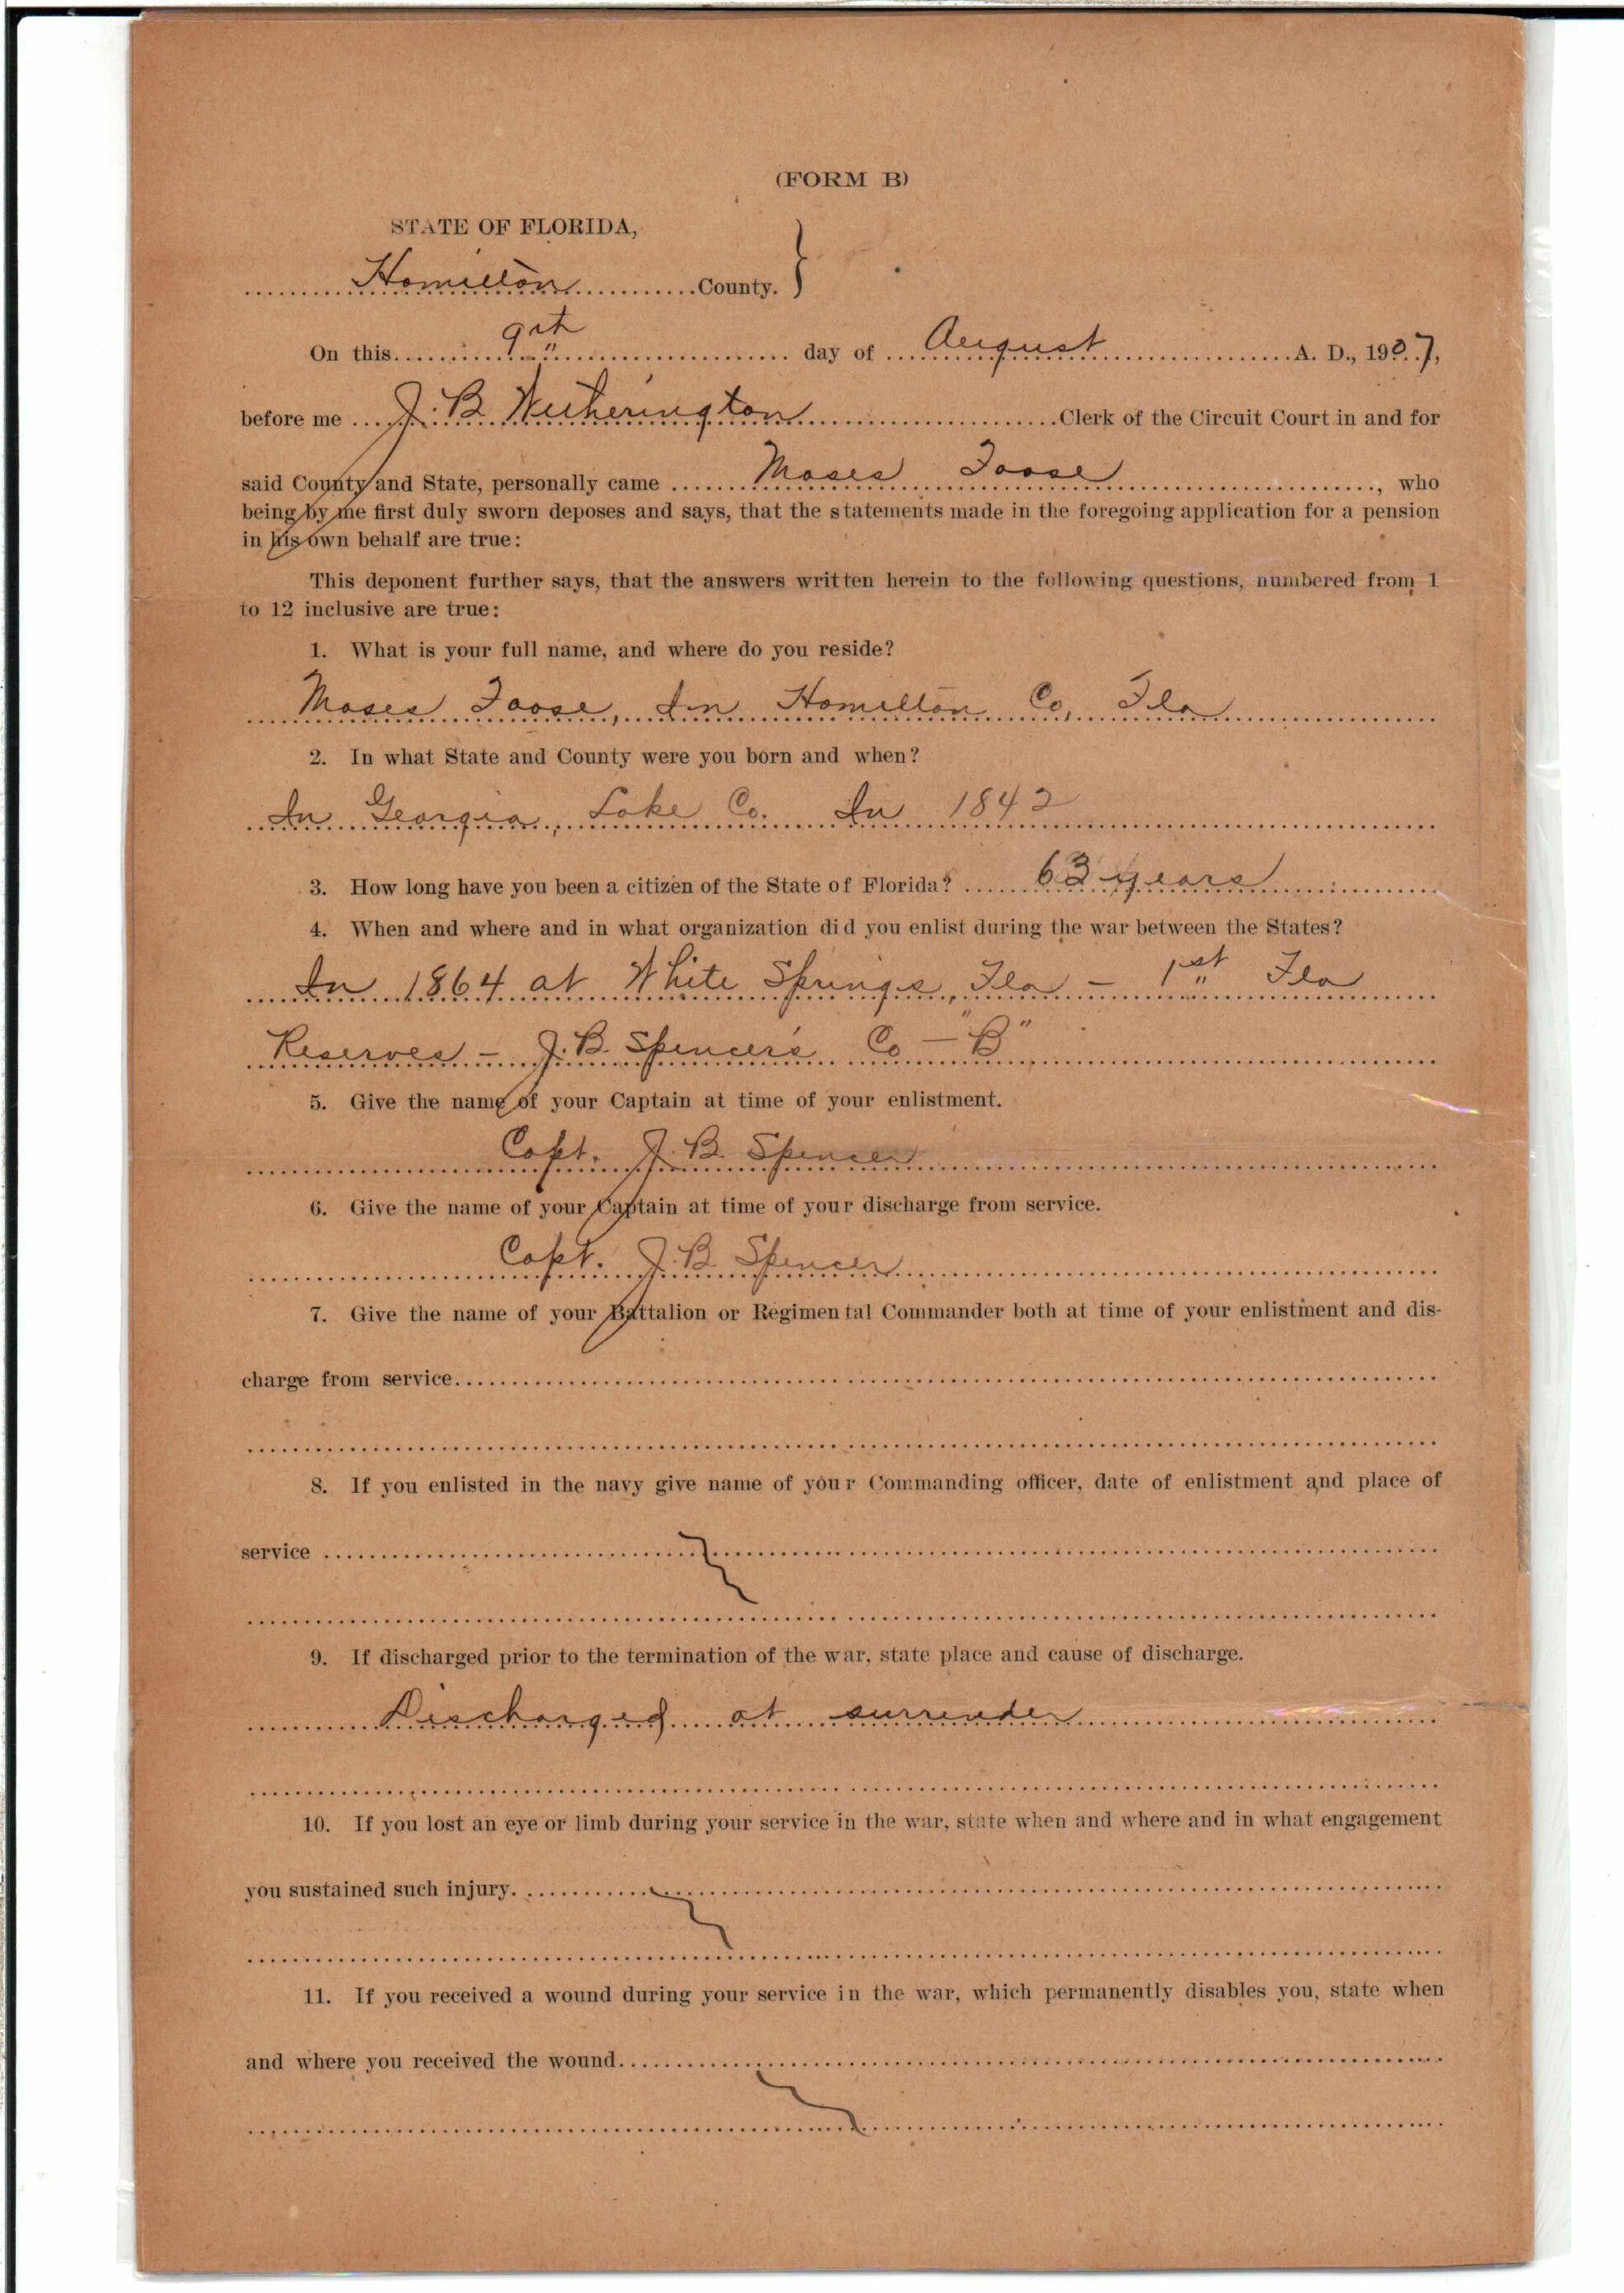 (FORM B)
STATE OF FLORIDA,
Hamilton County.
On this 9th day of August A. D., 1907,
before me J. B. Witherington Clerk of the Circuit Court in and for
said County and State, personally came Moses Foose, who
being by me first duly sworn deposes and says, that the statements made in the foregoing application for a pension
in his own behalf are true:
This deponent further says, that the answers written herein to the following questions, numbered from 1
to 12 inclusive are true:
1. What is your full name, and where do you reside?
Moses Foose, In Hamilton Co, Fla
2. In what State and County were you born and when?
In Georgia, Lake Co. In 1842
3. How long have you been a citizen of the State of Florida? 63 years
4. When and where and in what organization did you enlist during the war between the States?
In 1864 at White Springs, Fla - 1st Fla
Reserves - J. B. Spencer's Co - "B"
5. Give the name of your Captain at time of your enlistment.
Capt. J. B. Spencer
6. Give the name of your Captain at time of your discharge from service.
Capt. J. B. Spencer
7. Give the name of your Battalion or Regimental Commander both at time of your enlistment and dis-
charge from service
8. If you enlisted in the navy give name of your Commanding officer, date of enlistment and place of
service
9. If discharged prior to the termination of the war, state place and cause of discharge.
Discharged at surrender
10. If you lost an eye or limb during your service in the war, state when and where and in what engagement
you sustained such injury.
11. If you received a wound during your service in the war, which permanently disables you, state when
and where you received the wound